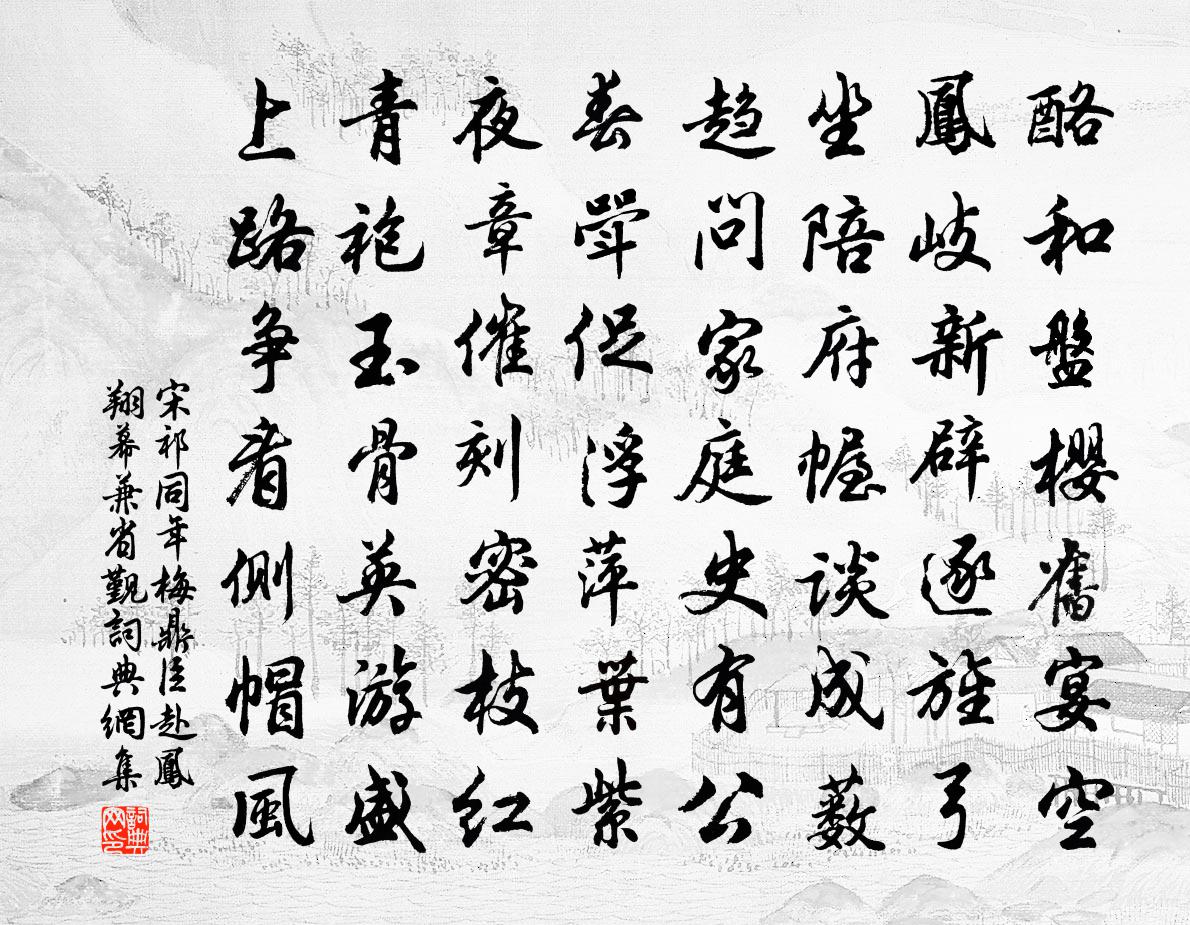 酪和盤櫻舊宴空
鳳岐新辟逐旌弓
坐陪府幄談成藪
趨問家庭史有公
春斝促浮萍葉紫
夜章催刻密枝紅
青袍玉骨英游盛
上路争看側帽風
宋祁同年梅鼎臣赴鳳
翔幕兼省覲詞典網集
詞典
网印